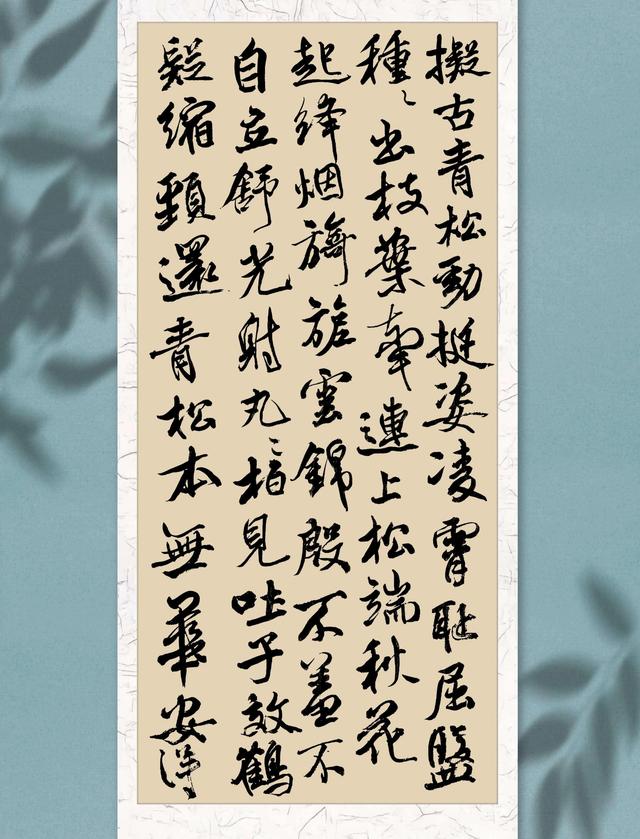 擬古青松勁挺姿凌霄耻屈盤
種々出枝葉牽連上松端秋花
起絳烟旖旎雲錦殷不羞不
自立舒光射丸々柏見吐子效鶴
疑縮頸還青松本無華安得